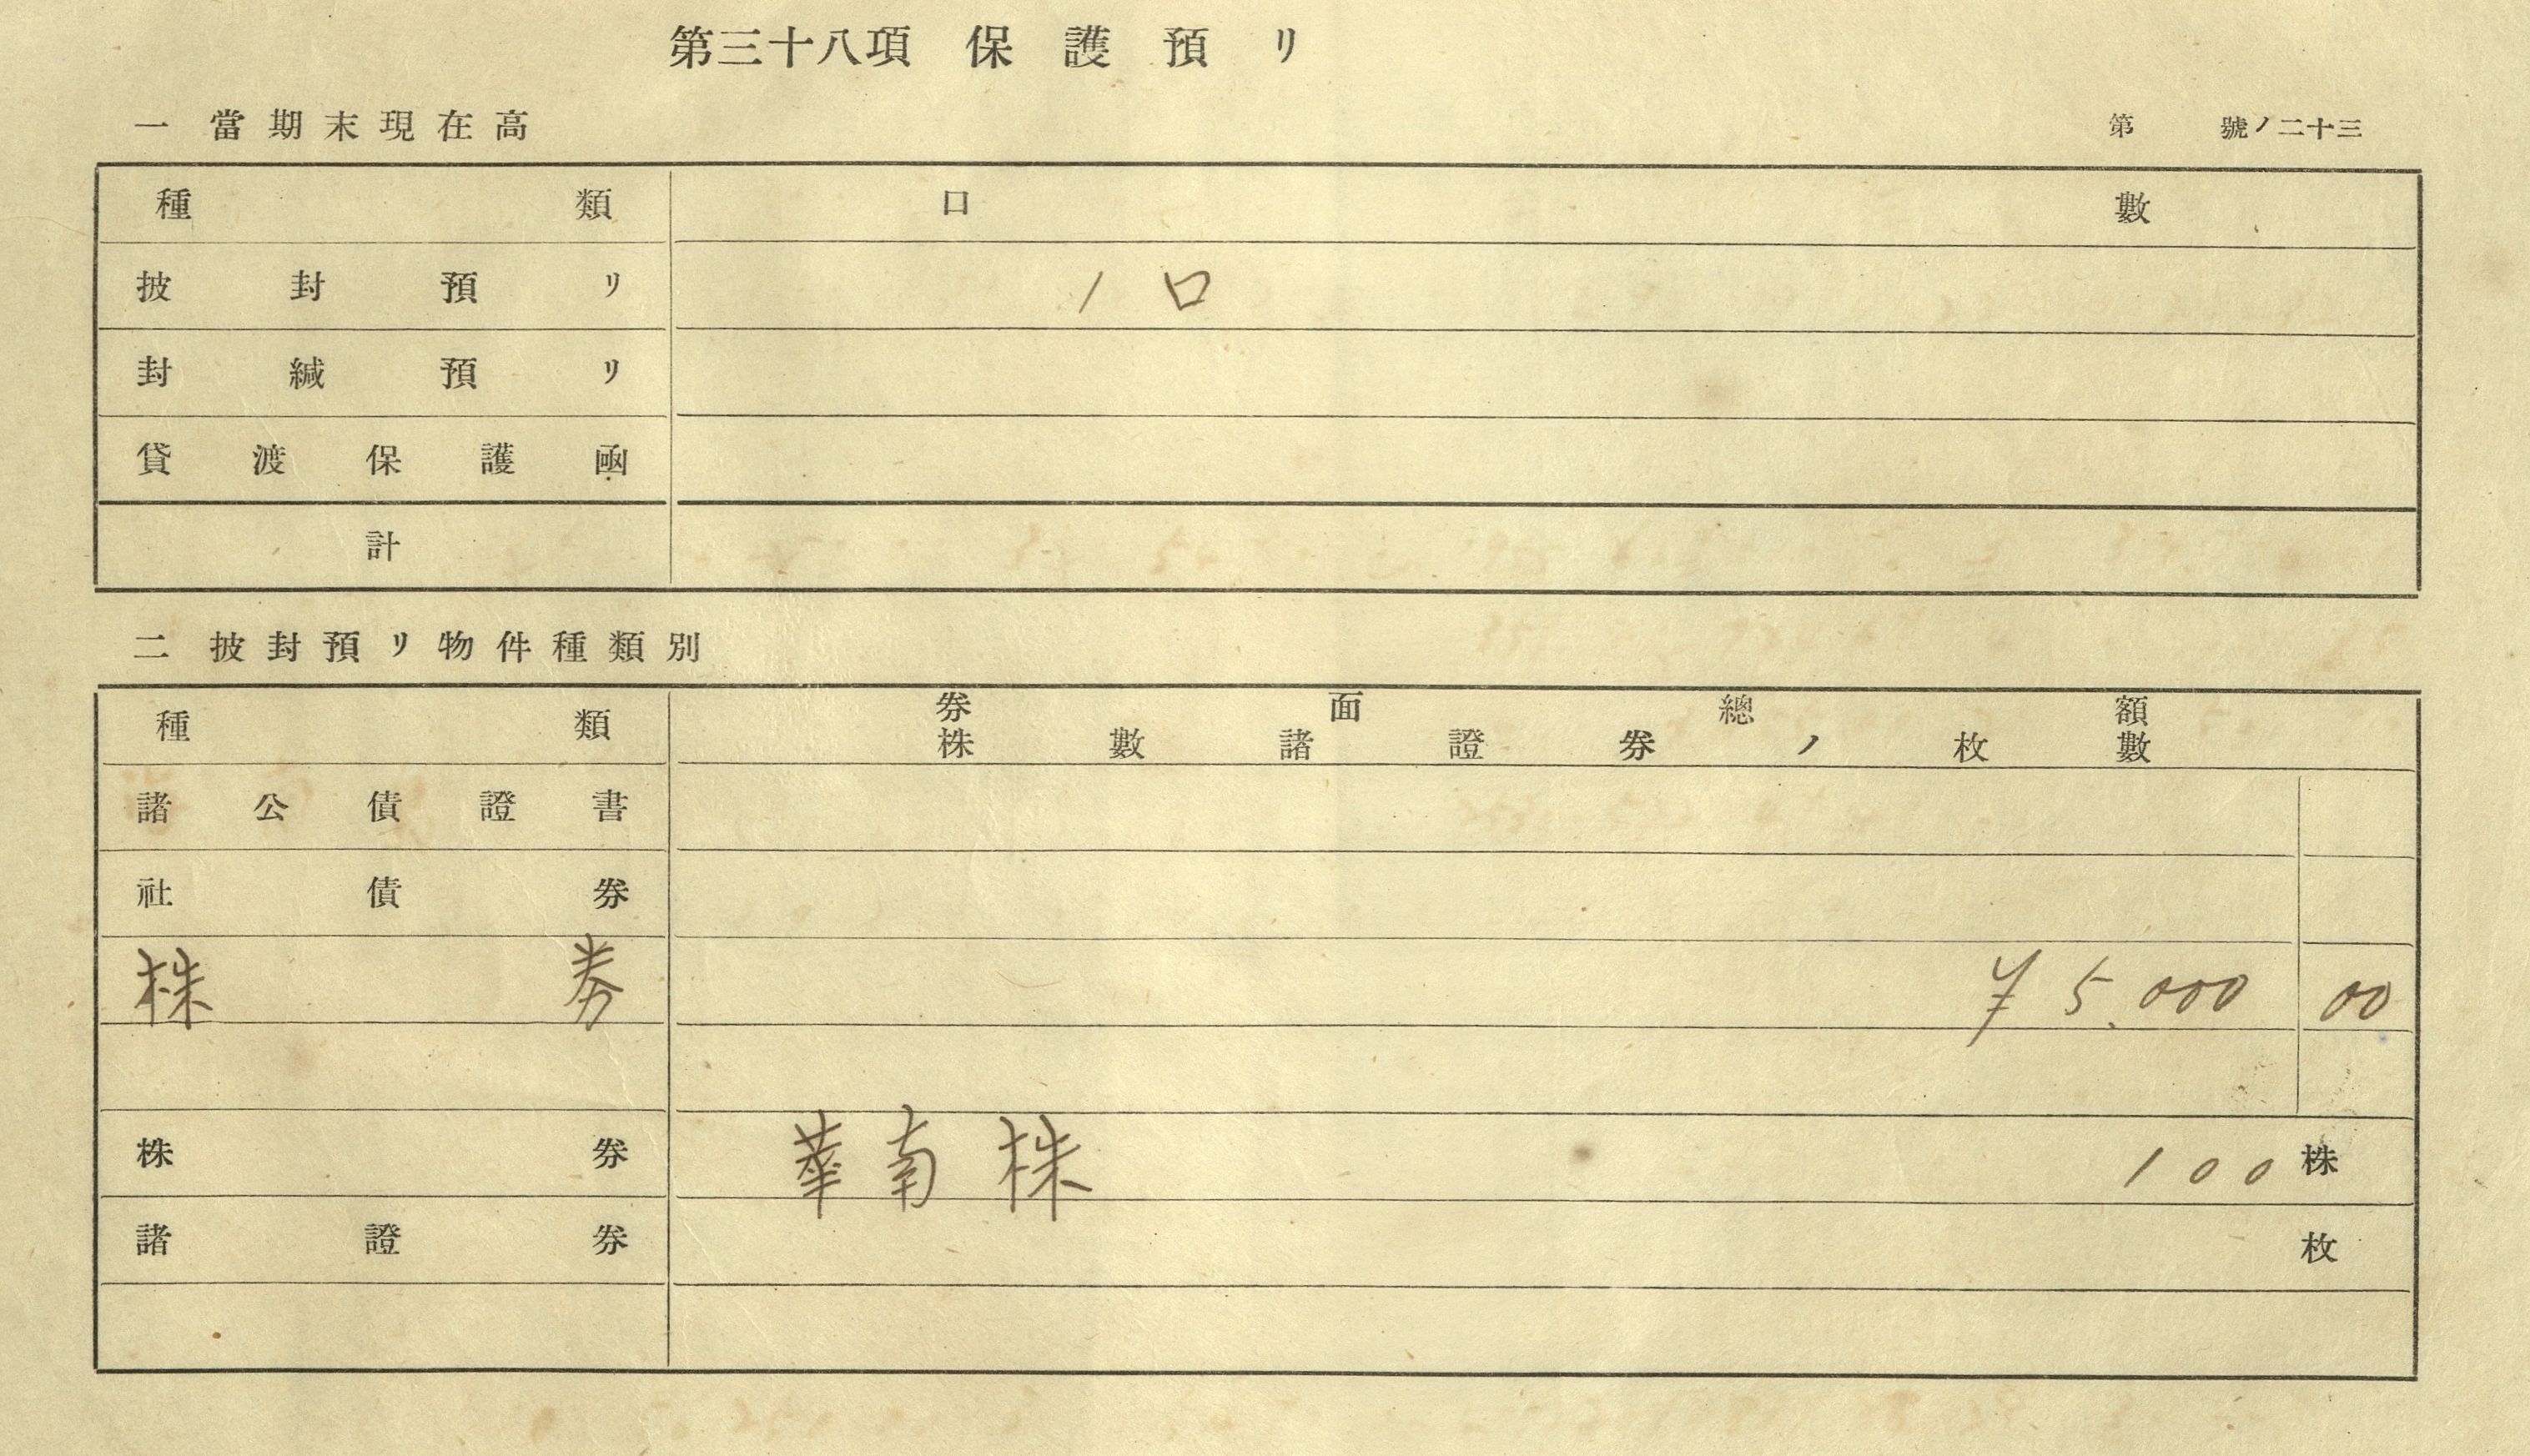 第三十八項 保護預リ
一 當期末現在高
第 號ノ二十三
種類 口數
披封預リ 1口
封緘預リ
貸渡保護凾
計
二 披封預リ物件種類別
種類 券面總額
株數諸證券ノ枚數
諸公債證書
社債券
株券 ¥5,000 00
株券 華南株 100株
諸證券 枚